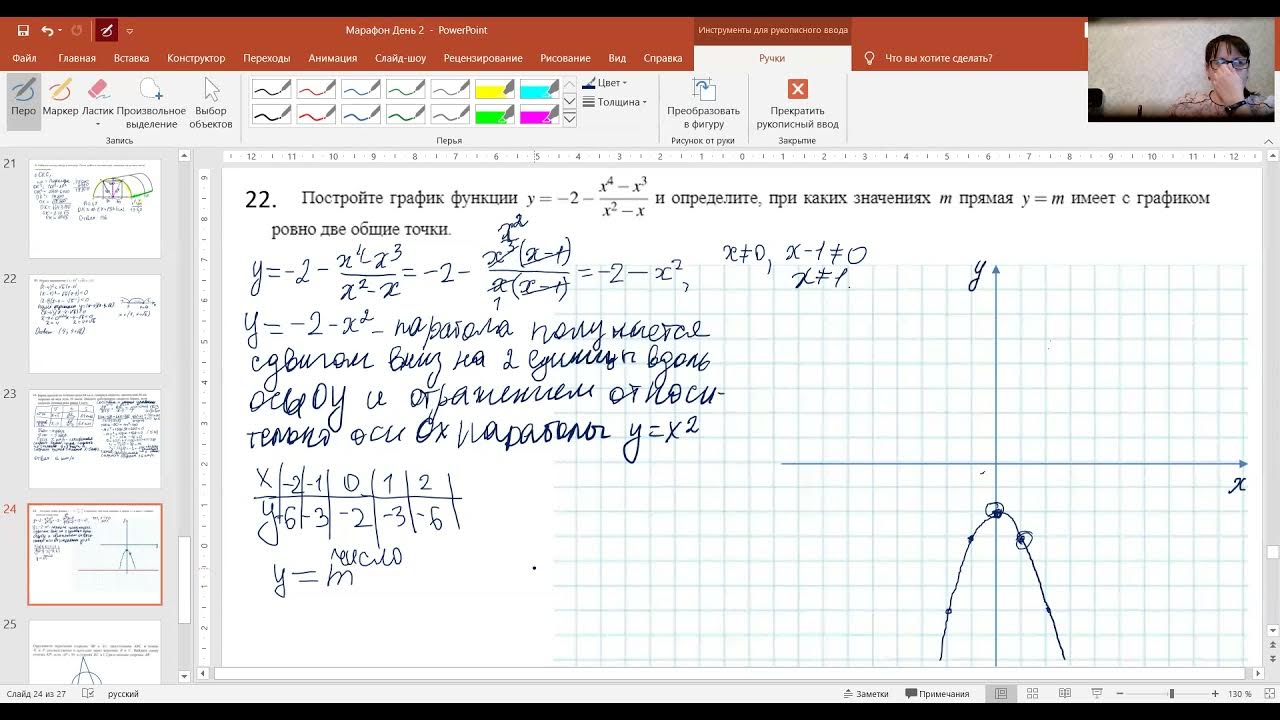 Марафон День 2 - PowerPoint
Инструменты для рукописного ввода
Файл Главная Вставка Конструктор Переходы Анимация Слайд-шоу Рецензирование Рисование Вид Справка Ручки Что вы хотите сделать?
Перо Маркер Ластик Произвольное выделение Выбор объектов
Цвет
Толщина
Преобразовать в фигуру
Прекратить рукописный ввод
Запись Перья Рисунок от руки Закрытие
12 11 10 9 8 7 6 5 4 3 2 1 0 1 2 3 4 5 6 7 8 9 10 11 12
21
22
23
24
25
22. Постройте график функции y = −2 − (x⁴ − x³)/(x² − x) и определите, при каких значениях m прямая y = m имеет с графиком
ровно две общие точки.
y = −2 − (x⁴ − x³)/(x² − x) = −2 − (x³(x−1))/(x(x−1)) = −2 − x², x≠0, x−1≠0
x² 1 x≠1.
y = −2 − x² − парабола получается
сдвигом вниз на 2 единицы вдоль
оси Оу и отражением относи-
тельно оси Ох параболы y = x²
x | −2 | −1 | 0 | 1 | 2
y | −6 | −3 | −2 | −3 | −6
y = m число
y
x
Слайд 24 из 27 русский Заметки Примечания 130 %